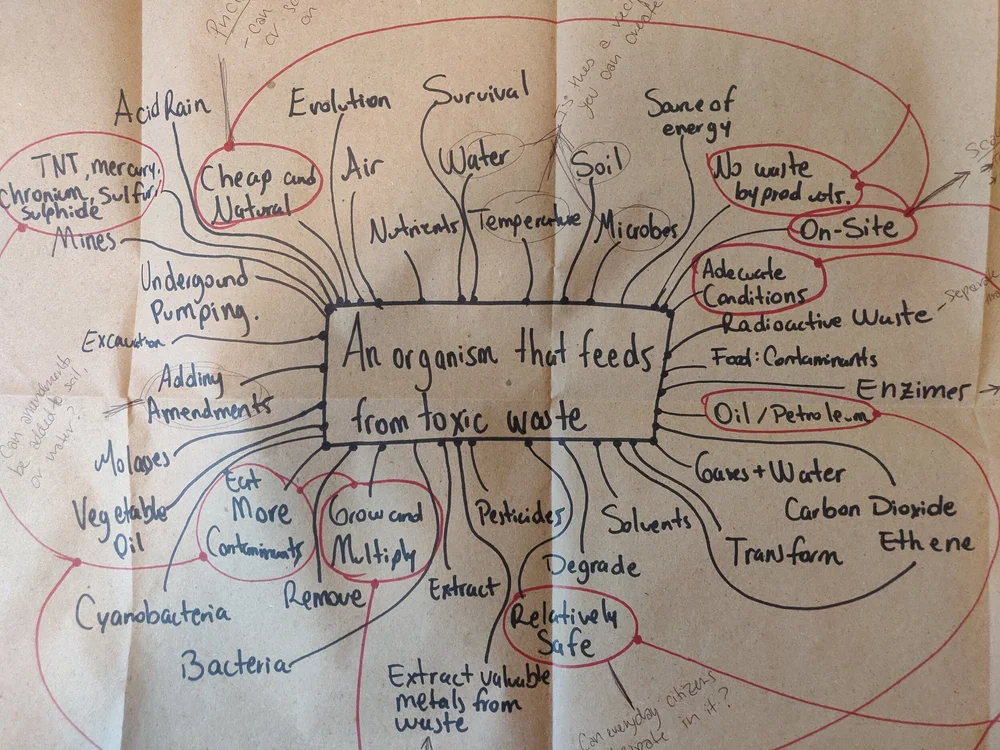 - Can
or
on
is this a
you can create
Acid Rain
Evolution
Survival
Source of
energy
TNT, mercury,
Chronium, Sulfur,
sulphide
Cheap and
Natural
Air
Water
Soil
No waste
byproducts.
Mines
Nutrients
Temperature
Microbes
On-Site
Undergound
Pumping.
Adecuate
Conditions
Radioactive Waste
Separate
Excavation
An organism that feeds
from toxic waste
Food: Contaminants
Enzimes
Adding
Amendments
Can amendments
be added to soil,
or water?
Oil/Petroleum
Molasses
Vegetable
Oil
Eat
More
Contaminants
Grow and
Multiply
Pesticides
Solvents
Gases + Water
Carbon Dioxide
Ethene
Transform
Degrade
Cyanobacteria
Remove
Extract
Relatively
Safe
Bacteria
Extract valuable
metals from
waste
Can everyday citizens
in it?